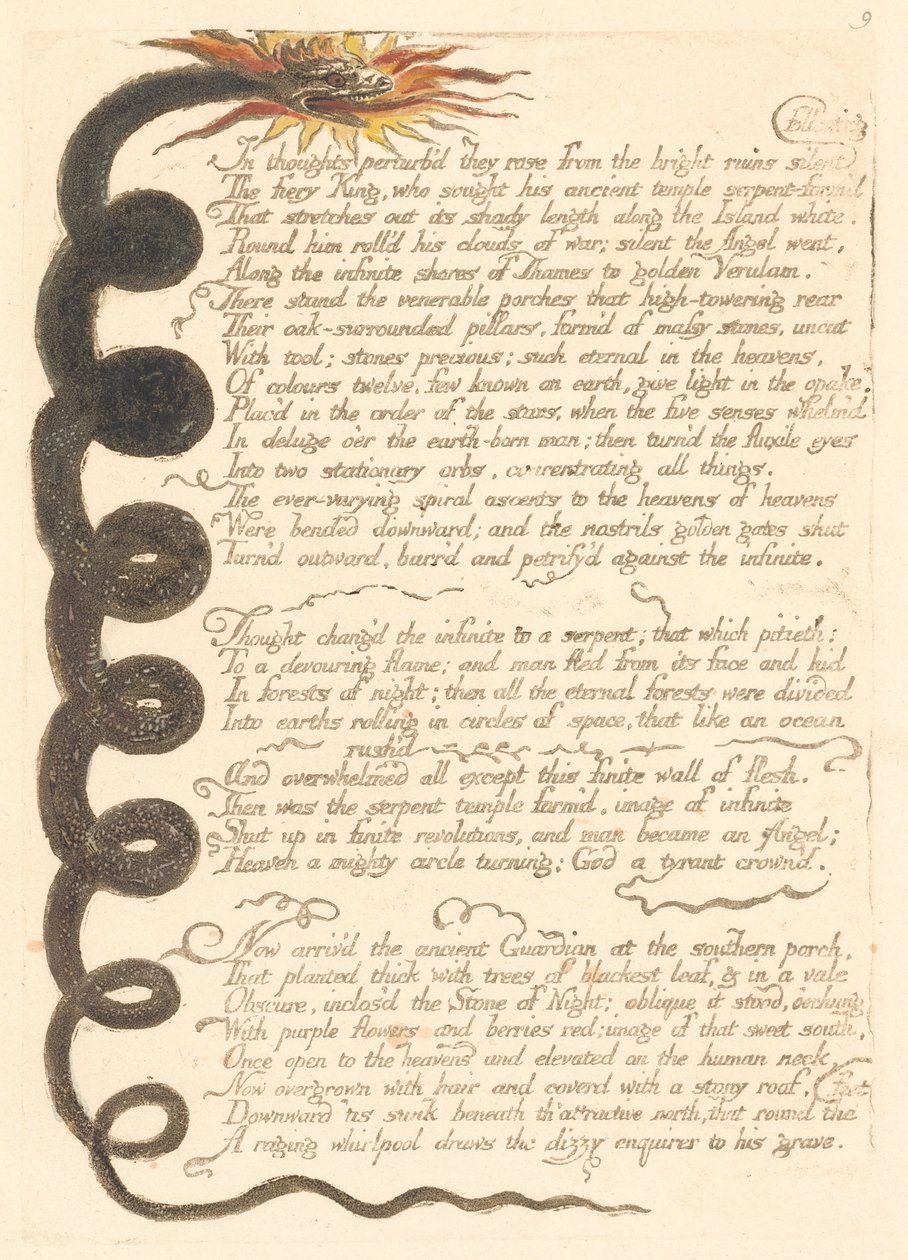 9
following
In thoughts perturb'd they rose from the bright ruins silent
The fiery King, who sought his ancient temple serpent-form'd
That stretches out its shady length along the Island white.
Round him roll'd his clouds of war; silent the Angel went,
Along the infinite shores of Thames to golden Verulam.
There stand the venerable porches that high-towering rear
Their oak-surrounded pillars, form'd of massy stones, uncut
With tool; stones precious; such eternal in the heavens,
Of colours twelve, few known on earth, give light in the opake,
Plac'd in the order of the stars, when the five senses whelm'd
In deluge o'er the earth-born man; then turn'd the fluxile eyes
Into two stationary orbs, concentrating all things.
The ever-varying spiral ascents to the heavens of heavens
Were bended downward; and the nostrils golden gates shut
Turn'd outward, barr'd and petrify'd against the infinite.
Thought chang'd the infinite to a serpent; that which pitieth:
To a devouring flame; and man fled from its face and hid
In forests of night; then all the eternal forests were divided
Into earths rolling in circles of space, that like an ocean
rush'd
And overwhelmed all except this finite wall of flesh.
Then was the serpent temple form'd, image of infinite
Shut up in finite revolutions, and man became an Angel;
Heaven a mighty circle turning; God a tyrant crown'd.
Now arriv'd the ancient Guardian at the southern porch,
That planted thick with trees of blackest leaf, & in a vale
Obscure, inclos'd the Stone of Night; oblique it stood, o'erhung
With purple flowers and berries red; image of that sweet south,
Once open to the heavens and elevated on the human neck,
Now overgrown with hair and coverd with a stony roof,
Downward 'tis sunk beneath th' attractive north, that round the
feet
A raging whirlpool draws the dizzy enquirer to his grave.